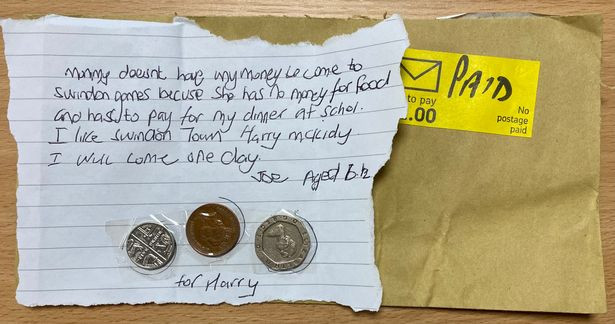 Mommy doesnt have any money to come to
Swindon games becuse she has no money for food
and has to pay for my dinner at schol.
I like Swindon Town Harry mckidy
I will come one day.
Joe Aged 6½
for Harry
PAID
to pay
.00
No
postage
paid